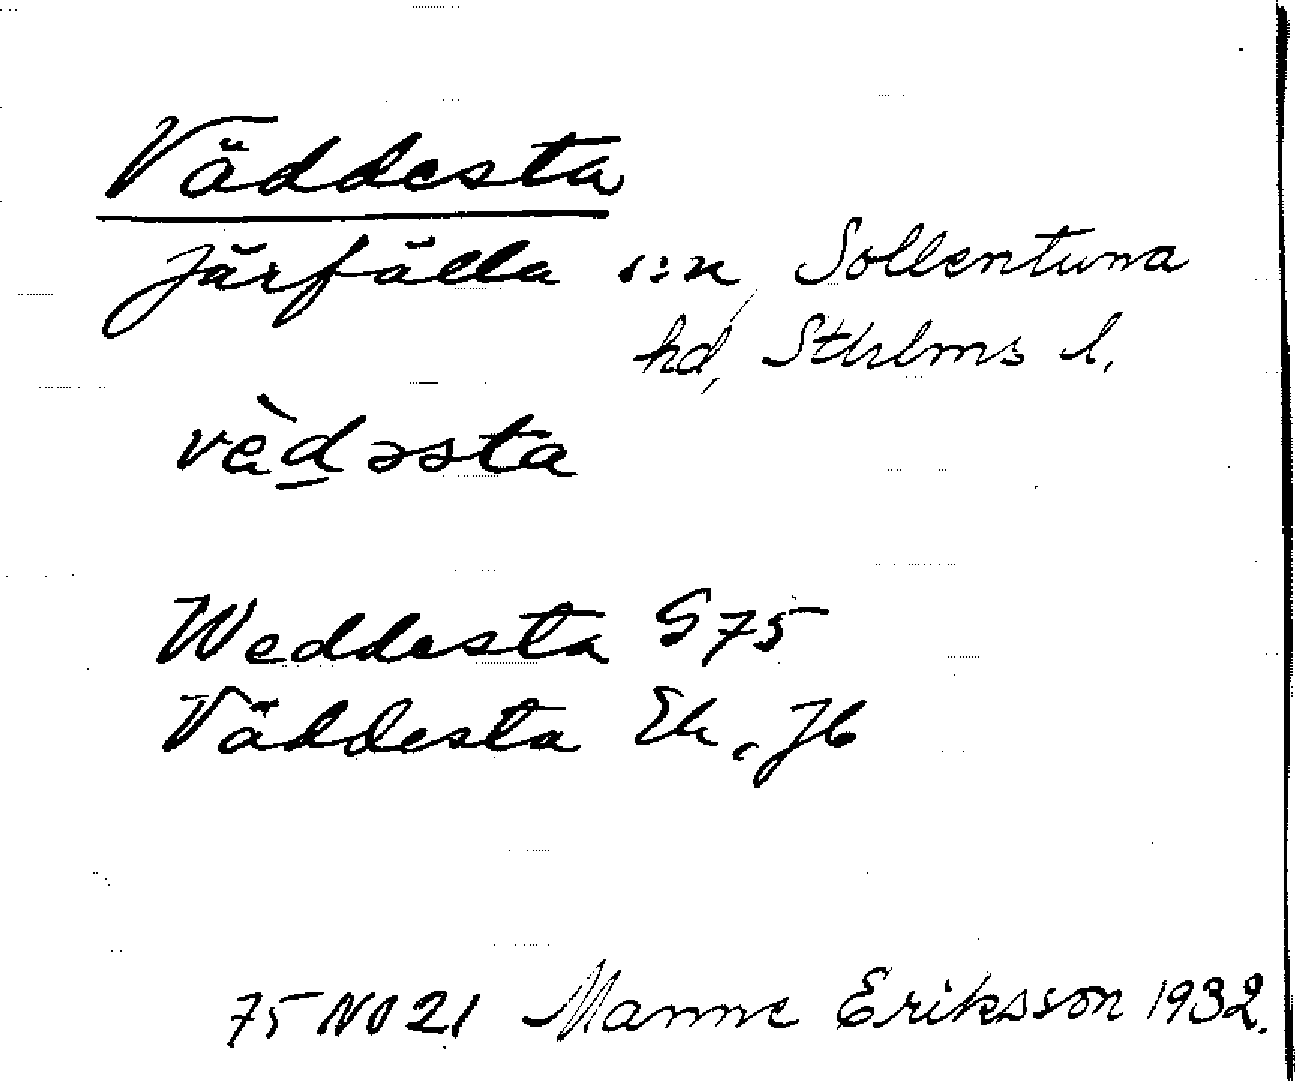 Väddesta
Järfälla s:n, Sollentuna
hd, Sthlms l.
vèd̲əsta
Weddesta G75
Väddesta Ek, Jb
75 NV 21 Manne Eriksson 1932.